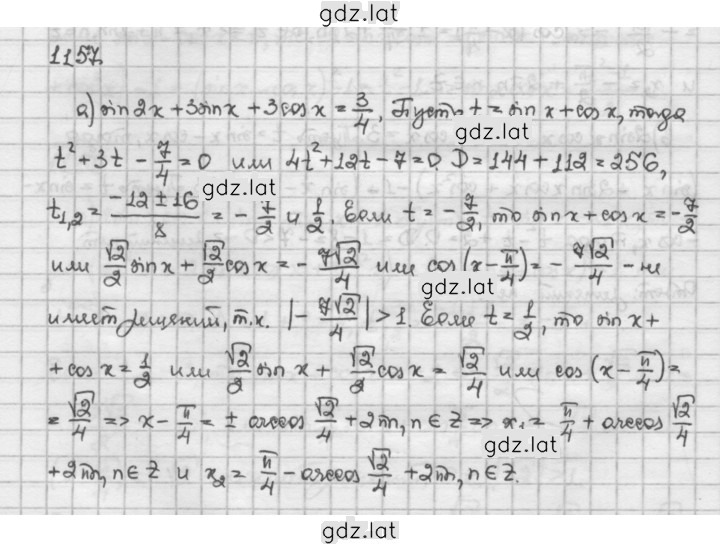 gdz.lat
1157.
а) sin2x + 3sinx + 3cosx = 3/4, Пусть t = sin x + cos x, тогда
gdz.lat
t² + 3t - 7/4 = 0 или 4t² + 12t - 7 = 0. D = 144 + 112 = 256,
gdz.lat
t₁,₂ = (-12 ± 16)/8 = - 7/2 и 1/2. Если t = - 7/2, то sinx + cosx = - 7/2
или √2/2 sinx + √2/2 cosx = - 7√2/4 или cos(x - π/4) = - 7√2/4 - не
gdz.lat
имеет решений, т.к. |- 7√2/4| > 1. Если t = 1/2, то sin x +
+ cos x = 1/2 или √2/2 sin x + √2/2 cos x = √2/4 или cos (x - π/4) =
= √2/4 => x - π/4 = ± arccos √2/4 + 2πn, n ∈ Z => x₁ = π/4 + arccos √2/4
gdz.lat
+ 2πn, n ∈ Z и x₂ = π/4 - arccos √2/4 + 2πn, n ∈ Z.
gdz.lat